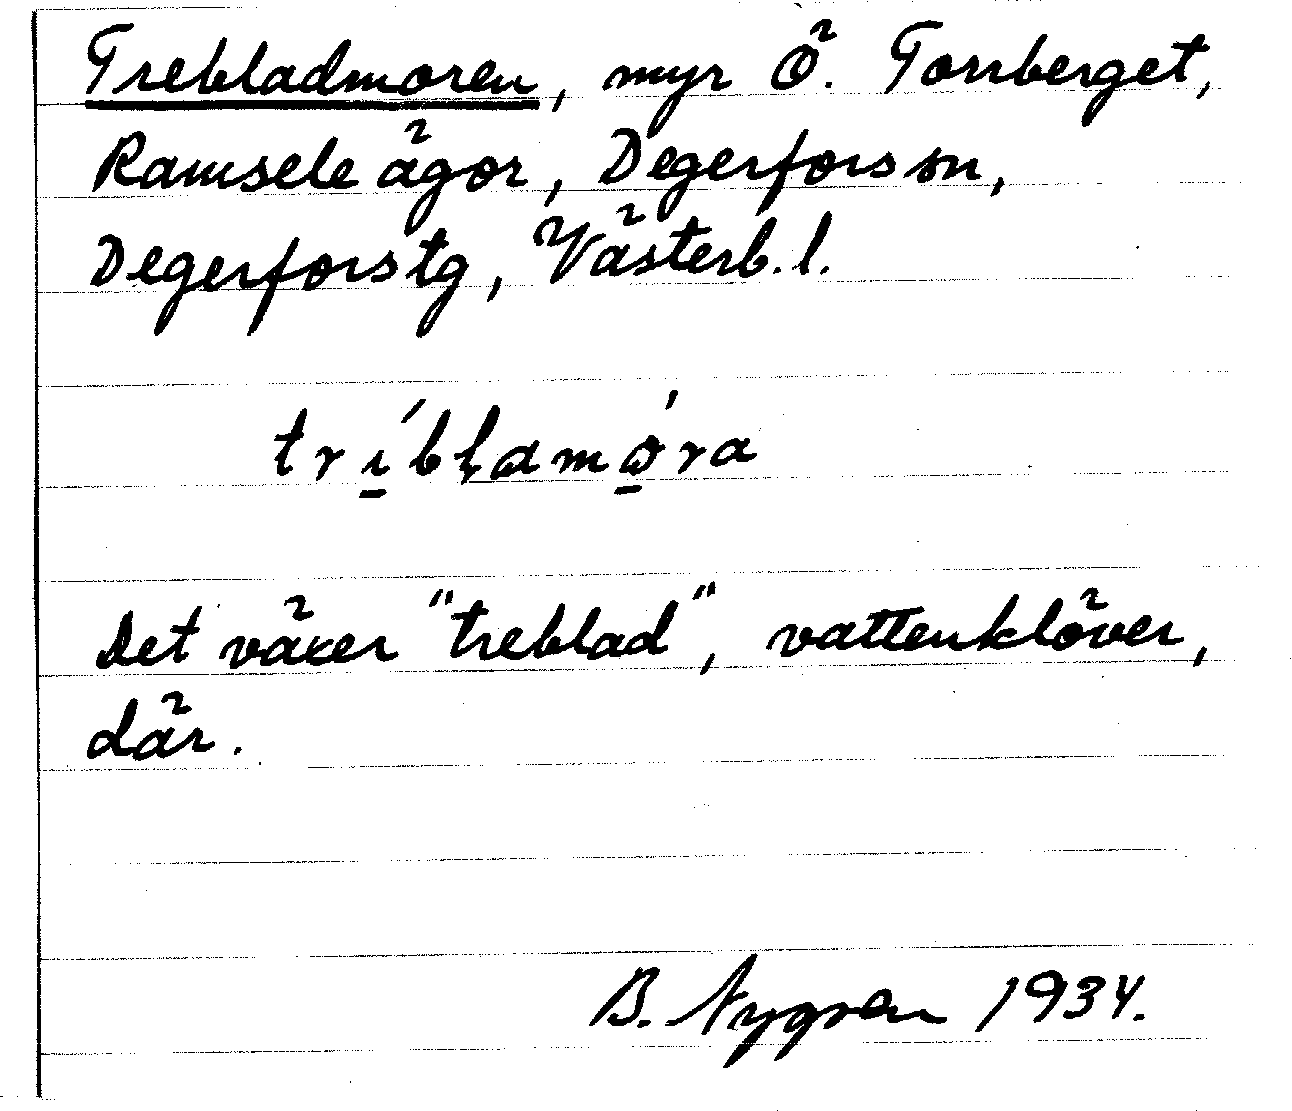 Trebladmoren, myr Ö. Torrberget,
Ramsele ägor, Degerfors sn,
Degerfors tg, Västerb. l.
tríbḷamǿra
Det växer "treblad", vattenklöver,
där.
B. Nygren 1934.